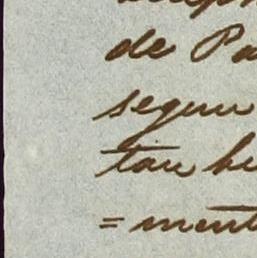 de Pa
segun
tan be
=ment